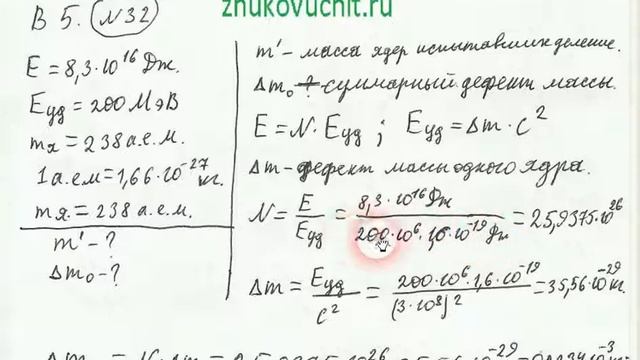 zhukovuchit.ru
В 5. N32
E = 8,3·10¹⁶ Дж.
Eуд = 200 МэВ
mя = 238 а.е.м.
1а.е.м = 1,66·10⁻²⁷ кг.
mя. = 238 а.е.м.
m' - ?
Δm₀ - ?
m' - масса ядер испытавших деление.
Δm₀ - суммарный дефект массы.
E = N·Eуд ; Eуд = Δm·c²
Δm - дефект массы одного ядра.
N = E/Eуд = 8,3·10¹⁶ Дж / 200·10⁶·1,6·10⁻¹⁹ Дж = 25,9375·10²⁶
Δm = Eуд/c² = 200·10⁶·1,6·10⁻¹⁹ / (3·10⁸)² = 35,56·10⁻²⁹ кг.